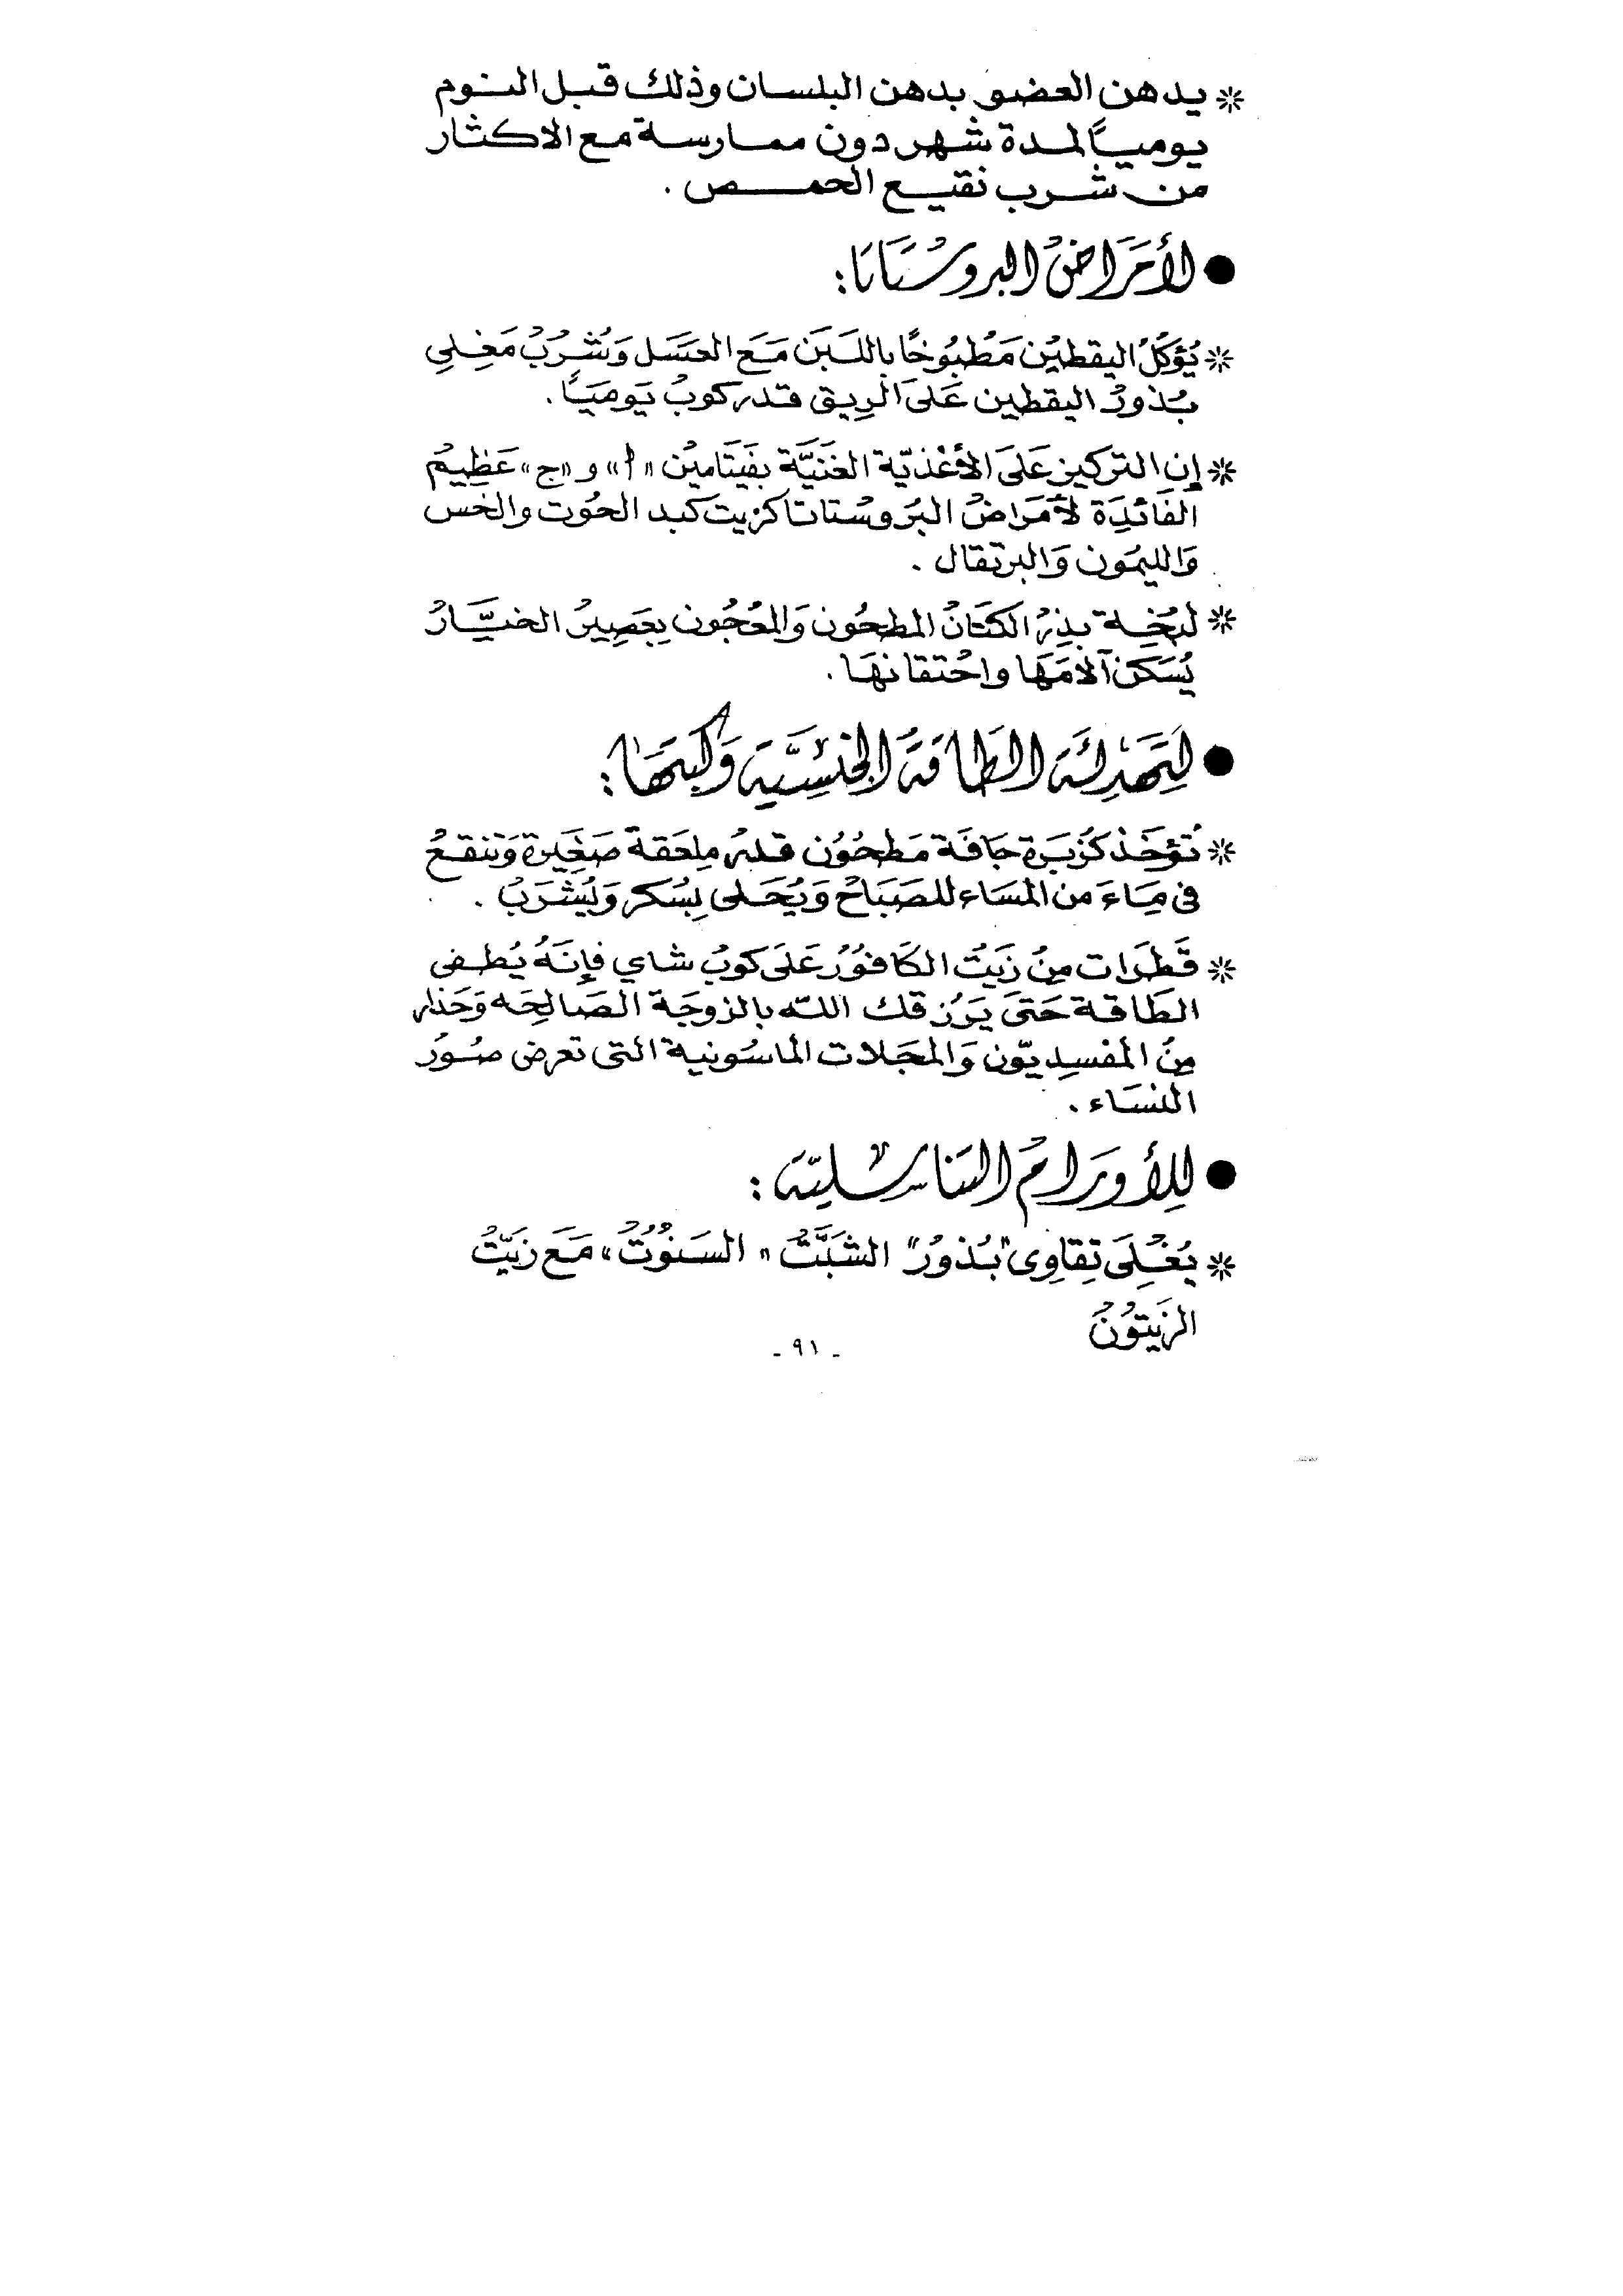 * يدهن العضو بدهن البلسان وذلك قبل النوم
يومياً لمدة شهر دون ممارسة مع الاكثار
من شرب نقيع الحمص .
● لأمَرَاضْ البروسْتَاتَا :
* يُؤكَلْ اليقطيْن مَطبُوخًا باللبَن مَعَ العسَل وَيُشْرَبْ مَغلِي
بُذورْ اليقطين عَلىَ الرِيق قدر كوبْ يَوميَاً .
* إن التركيز عَلىَ الأغذيّة الغَنيَّة بفيتَاميْن «أ» و «ج» عَظِيمْ
الفَائدِة لأمَرَاضْ البرَوسْتاتا كزيت كبد الحوُت والخس
وَالليمُون وَالبرتقال .
* لبْخَة بذِرْ الكتَانْ المطحُون وَالمعْجُون بِعَصِيرْ الخيَّارْ
يُسَكن آلامَهَا واحْتقانهَا .
● لتَهَدِئَة الطَاقَة الجنْسِيَّة وَكبَتهَا :
* تُؤخَذ كزُبَرة جَافَة مَطحُوْن قدرْ مِلعَقة صَغَيرة وَتنقعْ
فى مَاءَ من المسَاء للصَبَاحْ وَيُحَلى بِسُكر وَيُشْرَبْ .
* قَطَرات مِنْ زَيتْ الكَافوُرْ عَلىَ كوبْ شاي فإِنَهُ يُطفى
الطَاقة حَتىَ يَرَزقك الله بالزوجَة الصَالحِه وَحَذار
مِنْ المفسِديّون وَالمجَلات الماسُونية التى تعرض صُوَر
النسَاء .
● لِلأورَامْ التناسْليّة :
* يُغْلِىَ تِقاوِى "بُذورْ" الشبَّتْ «السَنوُتْ» مَعَ زيَتْ
الزَيتوُنْ
- ٩١ -